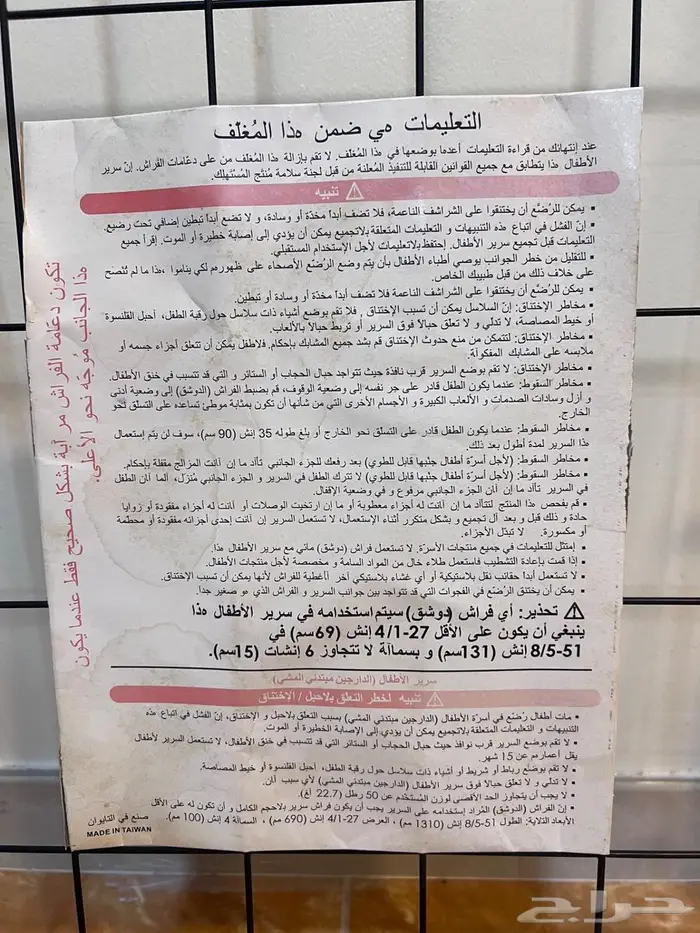 التعليمات هي ضمن هذا المُغلّف
عند إنتهائك من قراءة التعليمات أعدها بوضعها في هذا المُغلّف. لا تقم بإزالة هذا المُغلّف من على دعّامات الفراش. إنّ سرير
الأطفال هذا يتطابق مع جميع القوانين القابلة للتنفيذ المُعلنة من قبل لجنة سلامة مُنتَج المُستَهلِك.
تنبيه
▪ يمكن للرُضَّع أن يختنقوا على الشراشف الناعمة، فلا تضف أبداً مخدّة أو وسادة، و لا تضع أبداً تبطين إضافي تحت رضيع.
▪ إنّ الفشل في اتباع هذه التنبيهات و التعليمات المتعلقة بالتجميع يمكن أن يؤدي إلى إصابة خطيرة أو الموت. إقرأ جميع
التعليمات قبل تجميع سرير الأطفال. إحتفظ بالتعليمات لأجل الإستخدام المستقبلي.
▪ للتقليل من خطر الجوانب يوصي أطباء الأطفال بأن يتم وضع الرُضّع الأصحاء على ظهورهم لكي يناموا ،هذا ما لم تُنصَح
على خلاف ذلك من قبل طبيبك الخاص.
▪ يمكن للرُضَّع أن يختنقوا على الشراشف الناعمة فلا تضف أبداً مخدّة أو وسادة أو تبطين.
▪ مخاطر الإختناق: إنّ السلاسل يمكن أن تسبب الإختناق . فلا تقم بوضع أشياء ذات سلاسل حول رقبة الطفل، أحبل القلنسوة
أو خيط المصاصة، لا تدلي و لا تعلق حبالاً فوق السرير أو تربط حبالاً بالألعاب.
▪ مخاطر الإختناق: لتتمكن من منع حدوث الإختناق قم بشد جميع المشابك بإحكام. فالاطفل يمكن أن تتعلق أجزاء جسمه أو
ملابسه على المشابك المفكوآة.
▪ مخاطر الإختناق: لا تقم بوضع السرير قرب نافذة حيث تتواجد حبال الحجاب أو الستائر و التي قد تتسبب في خنق الأطفال.
▪ مخاطر السقوط: عندما يكون الطفل قادر على جر نفسه إلى وضعية الوقوف، قم بضبط الفراش (الدوشق) إلى وضعية أدنى
و أزل وسادات الصدمات و الألعاب الكبيرة و الأجسام الأخرى التي من شأنها أن تكون بمثابة موطئ تساعده على التسلق نحو
الخارج.
▪ مخاطر السقوط: عندما يكون الطفل قادر على التسلق نحو الخارج أو بلغ طوله 35 إنش (90 سم)، سوف لن يتم إستعمال
هذا السرير لمدة أطول بعد ذلك.
▪ مخاطر السقوط: (لأجل أسرّة أطفال جنبها قابل للطوي) بعد رفعك للجزء الجانبي تأآد ما إن آانت المزالج مقفلة بإحكام.
▪ مخاطر السقوط: (لأجل أسرّة أطفال جنبها قابل للطوي) لا تترك الطفل في السرير و الجزء الجانبي مُنزَل، آلما آان الطفل
في السرير تأآد ما إن آان الجزء الجانبي مرفوع و في وضعية الإقفال.
▪ قم بفحص هذا المنتج لتتأآد ما إن آانت له أجزاء معطوبة أو ما إن ارتخيت الوصلات أو آانت له أجزاء مفقودة أو زوايا
حادة و ذلك قبل و بعد آل تجميع و بشكل متكرر أثناء الإستعمال، لا تستعمل السرير إن آانت إحدى أجزائه مفقودة أو محطمة
أو مكسورة. لا تبدّل الأجزاء.
▪ إمتثل للتعليمات في جميع منتجات الأسرّة. لا تستعمل فراش (دوشق) مائي مع سرير الأطفال هذا.
▪ إذا قمت بإعادة التشطيب فاستعمل طلاء خال من المواد السامة و مخصصة لأجل منتجات الأطفال.
▪ لا تستعمل أبداً حقائب نقل بلاستيكية أو أي غشاء بلاستيكي آخر آأغطية للفراش لأنها يمكن أن تسبب الإختناق.
▪ يمكن أن يختنق الرُضّع في الفجوات التي قد تتواجد بين جوانب السرير و الفراش الذي هو صغير جداً.
تحذير: أي فراش (دوشق) سيتم استخدامه في سرير الأطفال هذا
ينبغي أن يكون على الأقل 27-1/4 إنش (69سم) في
51-5/8 إنش (131سم) و بسماآة لا تتجاوز 6 إنشات (15سم).
سرير الأطفال (الدارجين مبتدئي المشي)
تنبيه لخطر التعلق بلاحبل / الإختناق
▪ مات أطفال رُضّع في أسرّة الأطفال (الدارجين مبتدئي المشي) بسبب التعلق بلاحبل و الإختناق، إنّ الفشل في اتباع هذه
التنبيهات و التعليمات المتعلقة بالتجميع يمكن أن يؤدي إلى الإصابة الخطيرة أو الموت.
▪ لا تقم بوضع السرير قرب نوافذ حيث حبال الحجاب أو الستائر التي قد تتسبب في خنق الأطفال، لا تستعمل السرير لأطفال
يقل أعمارهم عن 15 شهر.
▪ لا تقم بوضع رباط أو شريط أو أشياء ذات سلاسل حول رقبة الطفل، أحبل القلنسوة أو خيط المصاصة.
▪ لا تدلي و لا تعلق حبالاً فوق سرير الأطفال (الدارجين مبتدئي المشي) لأي سبب آان.
▪ لا يجب أن يتجاوز الحد الأقصى لوزن المُستَخدم عن 50 رطل (22.7 آغ).
▪ إنّ الفراش (الدوشق) المُراد إستخدامه على السرير يجب أن يكون فراش سرير بلاحجم الكامل و أن تكون له على الأقل
الأبعاد التلاية: الطول 51-5/8 إنش (1310 مم) ، العرض 27-1/4 إنش (690 مم) ، السماآة 4 إنش (100 مم).
صنع في التايوان
MADE IN TAIWAN
تكون دعّامة الفراش مرآبة بشكل صحيح فقط عندما يكون
هذا الجانب موُجّه نحو الأعلى.
حراج